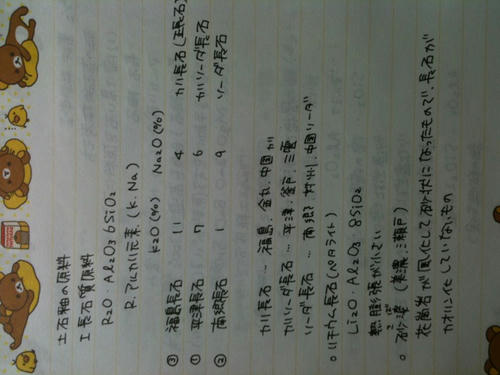 土石釉の原料
I 長石質原料
R2O・Al2O3 6SiO2
R:アルカリ元素 (K.Na)
K2O(%) Na2O(%)
③ 福島長石 11 4 カリ長石(正長石)
① 平津長石 7 6 カリソーダ長石
② 南郷長石 1 9 ソーダ長石
カリ長石 … 福島、金丸、中国カリ
カリソーダ長石 … 平津、釜戸、三雲
ソーダ長石 … 南郷、対州、中国ソーダ
○リチウム長石(ペタライト)
Li2O Al2O3 8SiO2
熱膨張が小さい
○ 砂婆 (美濃、瀬戸)
さば
花崗岩が風化して砂状になったもので、長石が
カオリン化していないもの